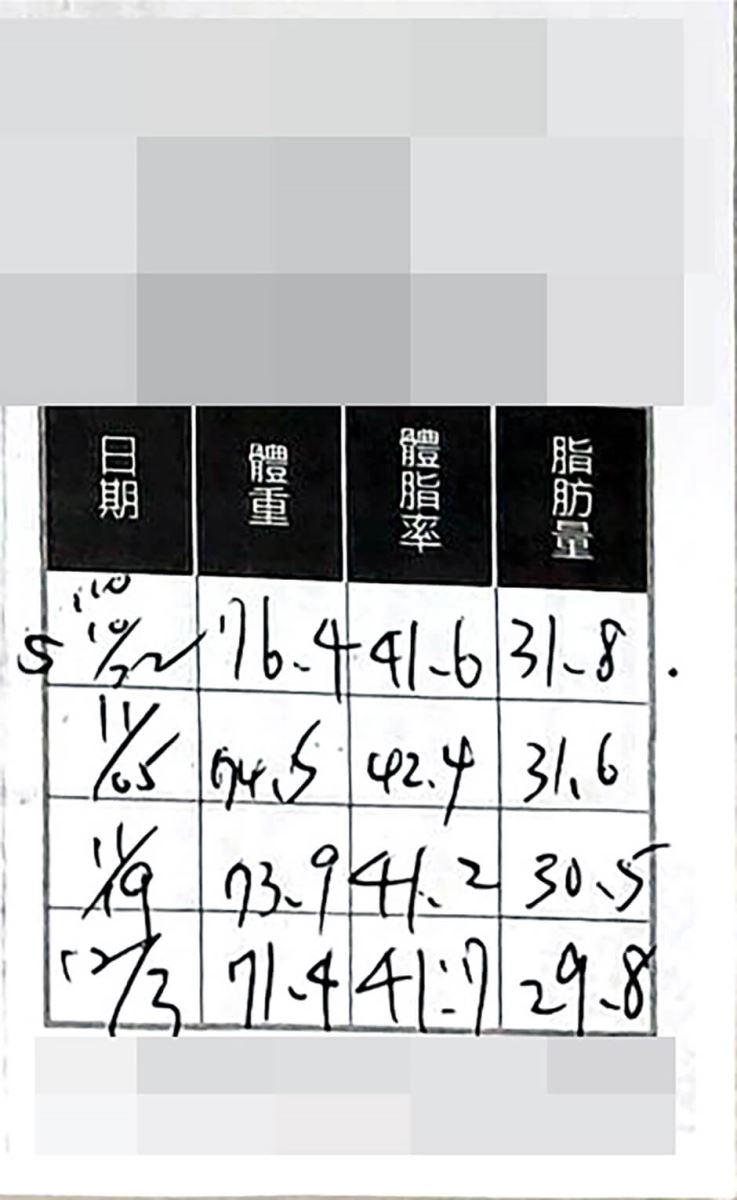 日期 體重 體脂率 脂肪量
110
5 10/22 76.4 41.6 31.8
11/05 74.5 42.4 31.6
11/19 73.9 41.2 30.5
12/3 71.4 41.7 29.8